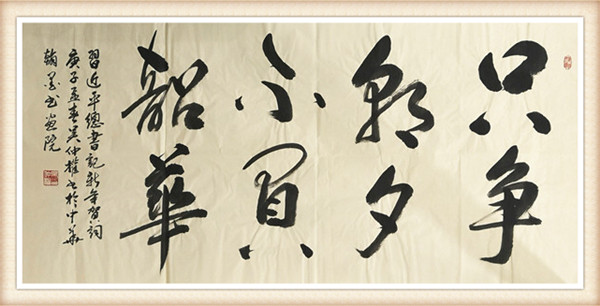 只争
朝夕
不負
韶華
習近平總書記新年賀詞
庚子孟春吴仲 书於中華
翰墨书画院